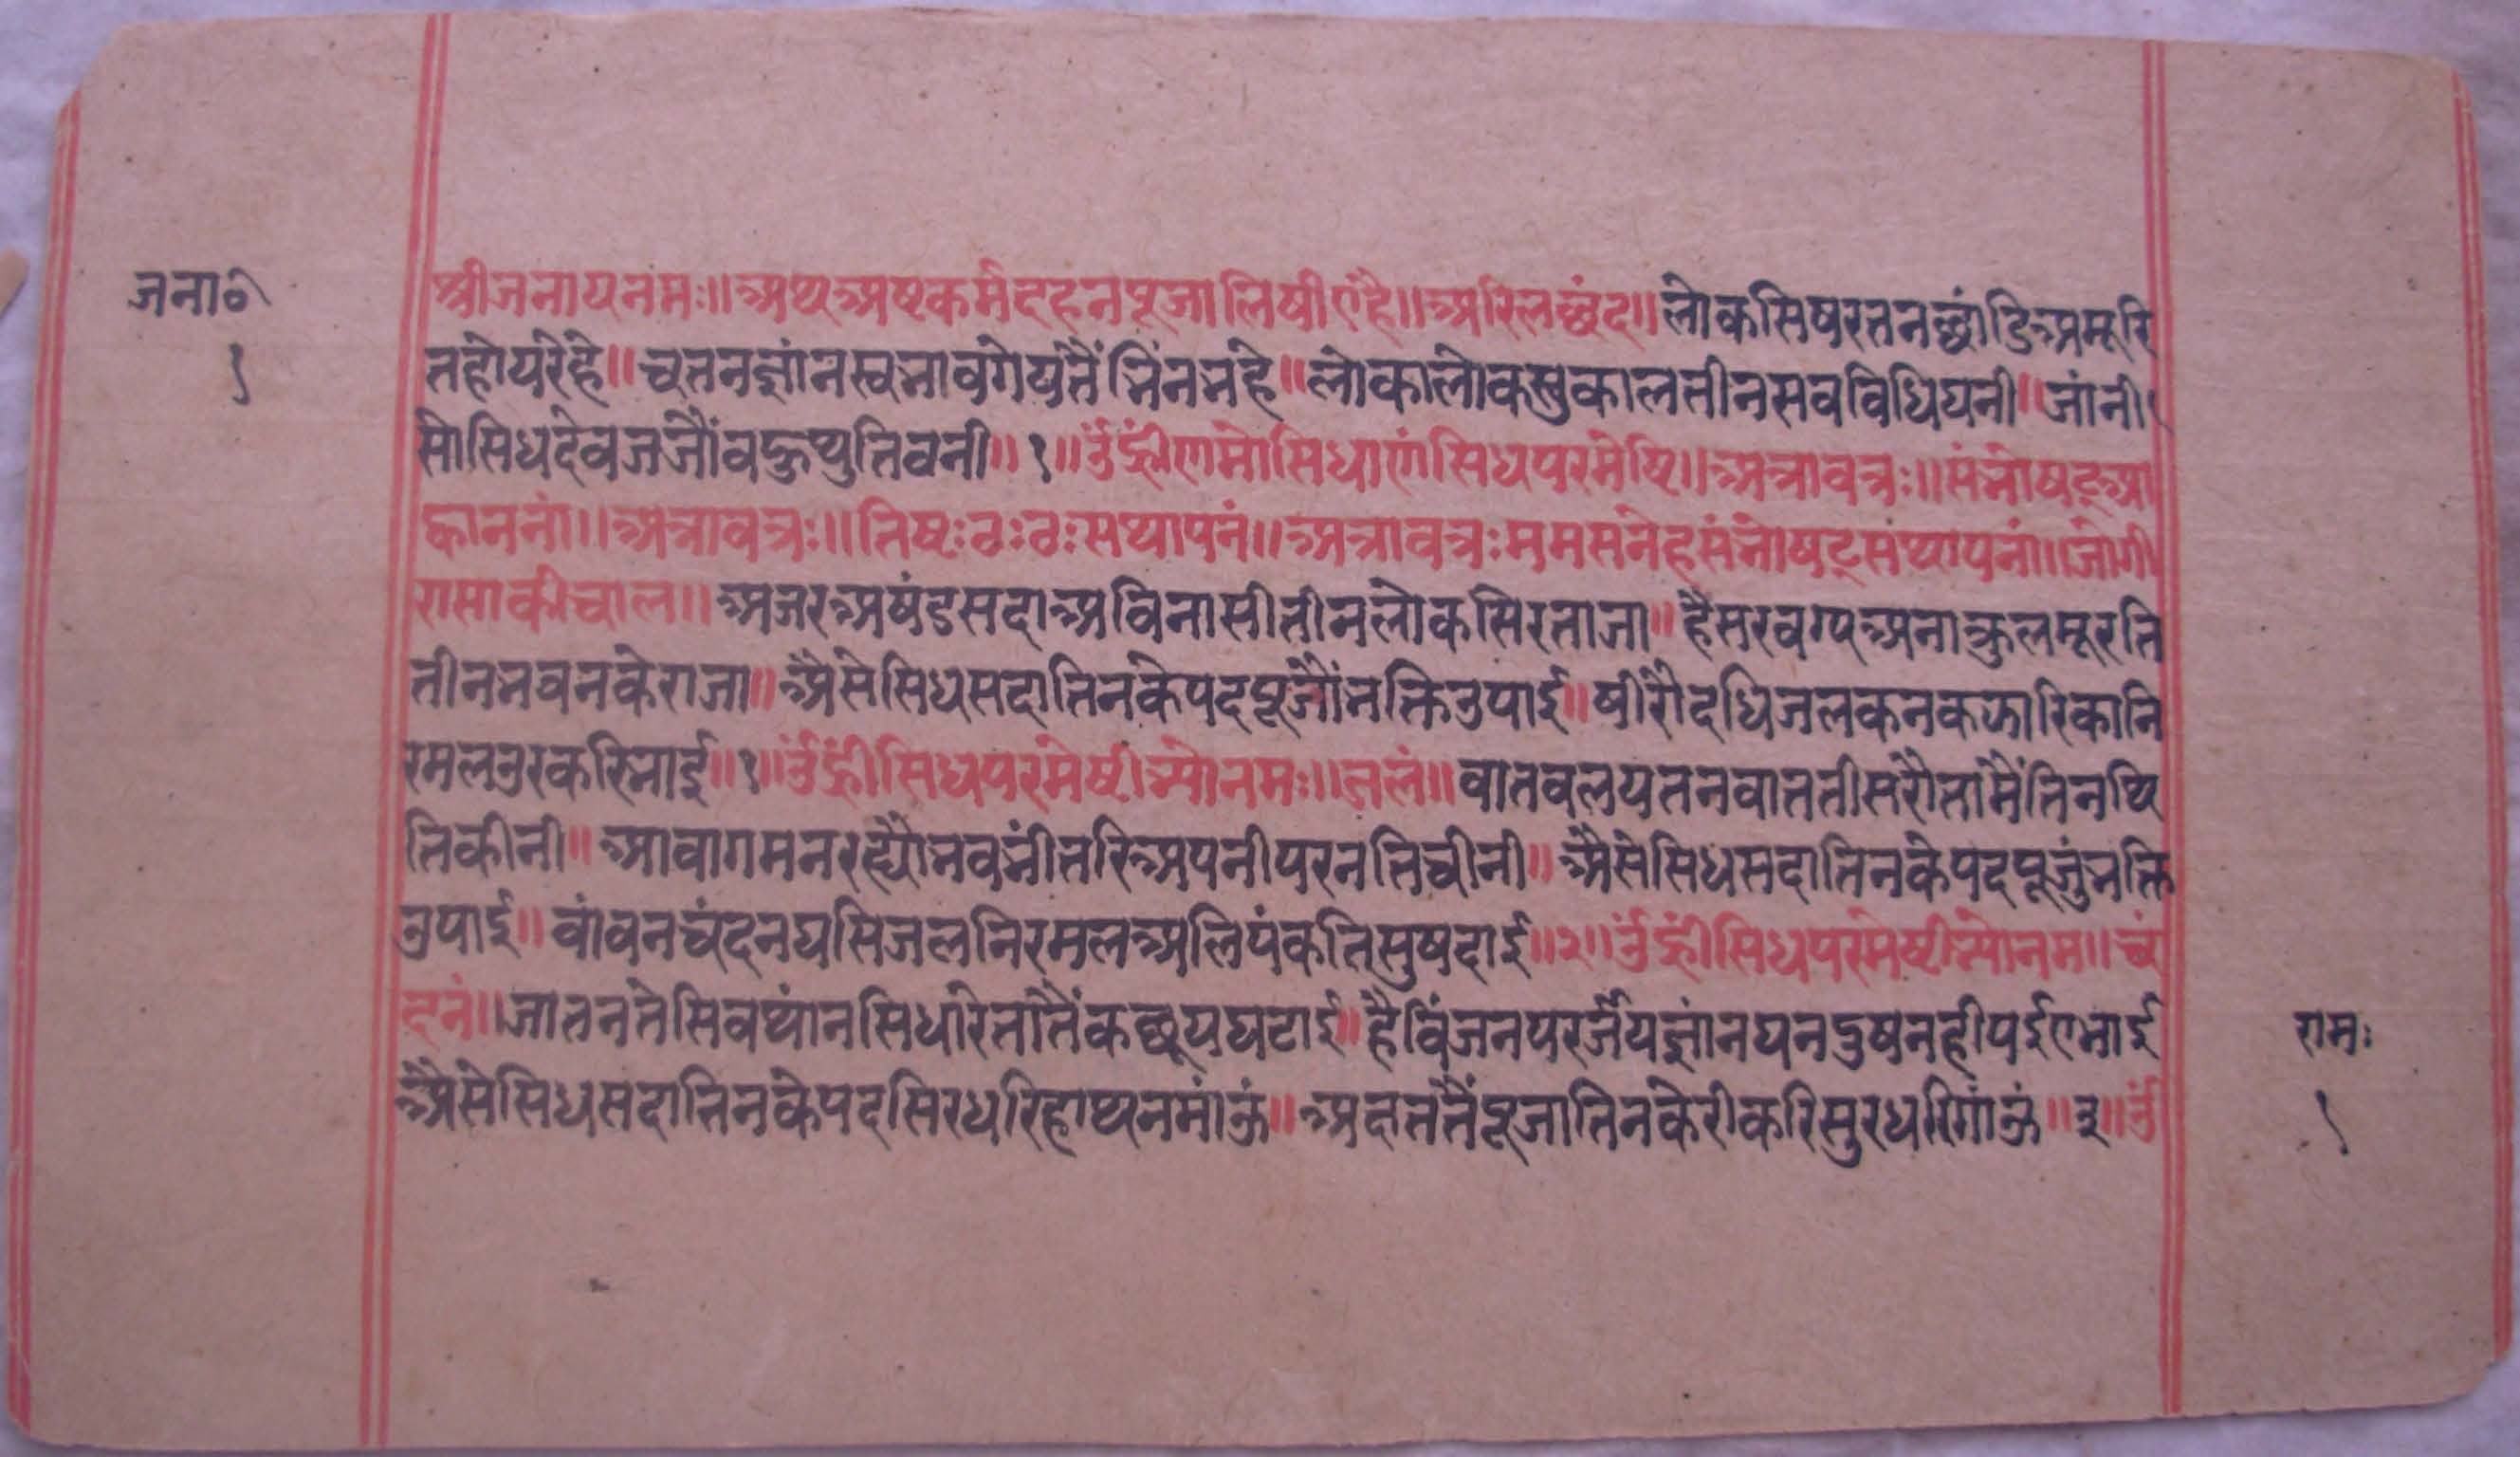 जना०
१
श्रीजनायनमः॥अथअष्टकर्मदहनपूजालिषीएहै॥अरिलछंद॥लोकसिषरतनछांडिअमूरि
तहोयरेहे॥चतनज्ञांनस्वभावगेयतैंभिंनभहे॥लोकालोकसुकालतीनसवविधिघनी॥जांनी
सोसिधदेवजजौंवहुथुतिवनी॥१॥ॐह्रींणमोसिधाणंसिधपरमेष्ठि॥अत्रावत्रः॥संभोषट्आ
ह्वाननां॥अत्रावत्रः॥तिष्टःठःठःसथापनं॥अत्रावत्रःममसनेहसंभोषट्संथापनां॥जोगी
रासाकीचाल॥अजरअषंडसदाअविनासीतीनलोकसिरताजा॥हैसरवग्यअनाकुलमूरति
तीनभवनकेराजा॥अैसेसिधसदातिनकेपदपूजौंभक्तिउपाई॥षीरोदधिजलकनकझारिकानि
रमलउरकरिभाई॥१॥ॐह्रींसिधपरमेष्टीभ्योनमः॥जलं॥वातवलयतनवाततीसरौतामैंतिनथि
तिकीनी॥आवागमनरह्यौभवभींतरिअपनीपरनतिचीनी॥अैसेसिधसदातिनकेपदपूजुंभक्ति
उपाई॥वांवनचंदनघसिजलनिरमलअलिपंकतिसुषदाई॥२॥ॐह्रींसिधपरमेष्टीभ्योनम॥चं
दनं॥जातनतेसिवथांनसिधारेतातैंकछूयघटाई॥हैविंजनपरजैयज्ञांनघनदुषनहीपईएभाई
अैसेसिधसदातिनकेपदसिरधरिहाथनमांऊं॥अक्षततैंपूजातिनकेरीकरिसुरधरिगांऊं॥३॥ॐ
रामः
१